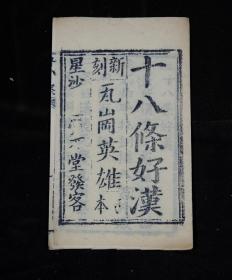 十八條好漢
新刻
瓦崗英雄
本
星沙
堂發客